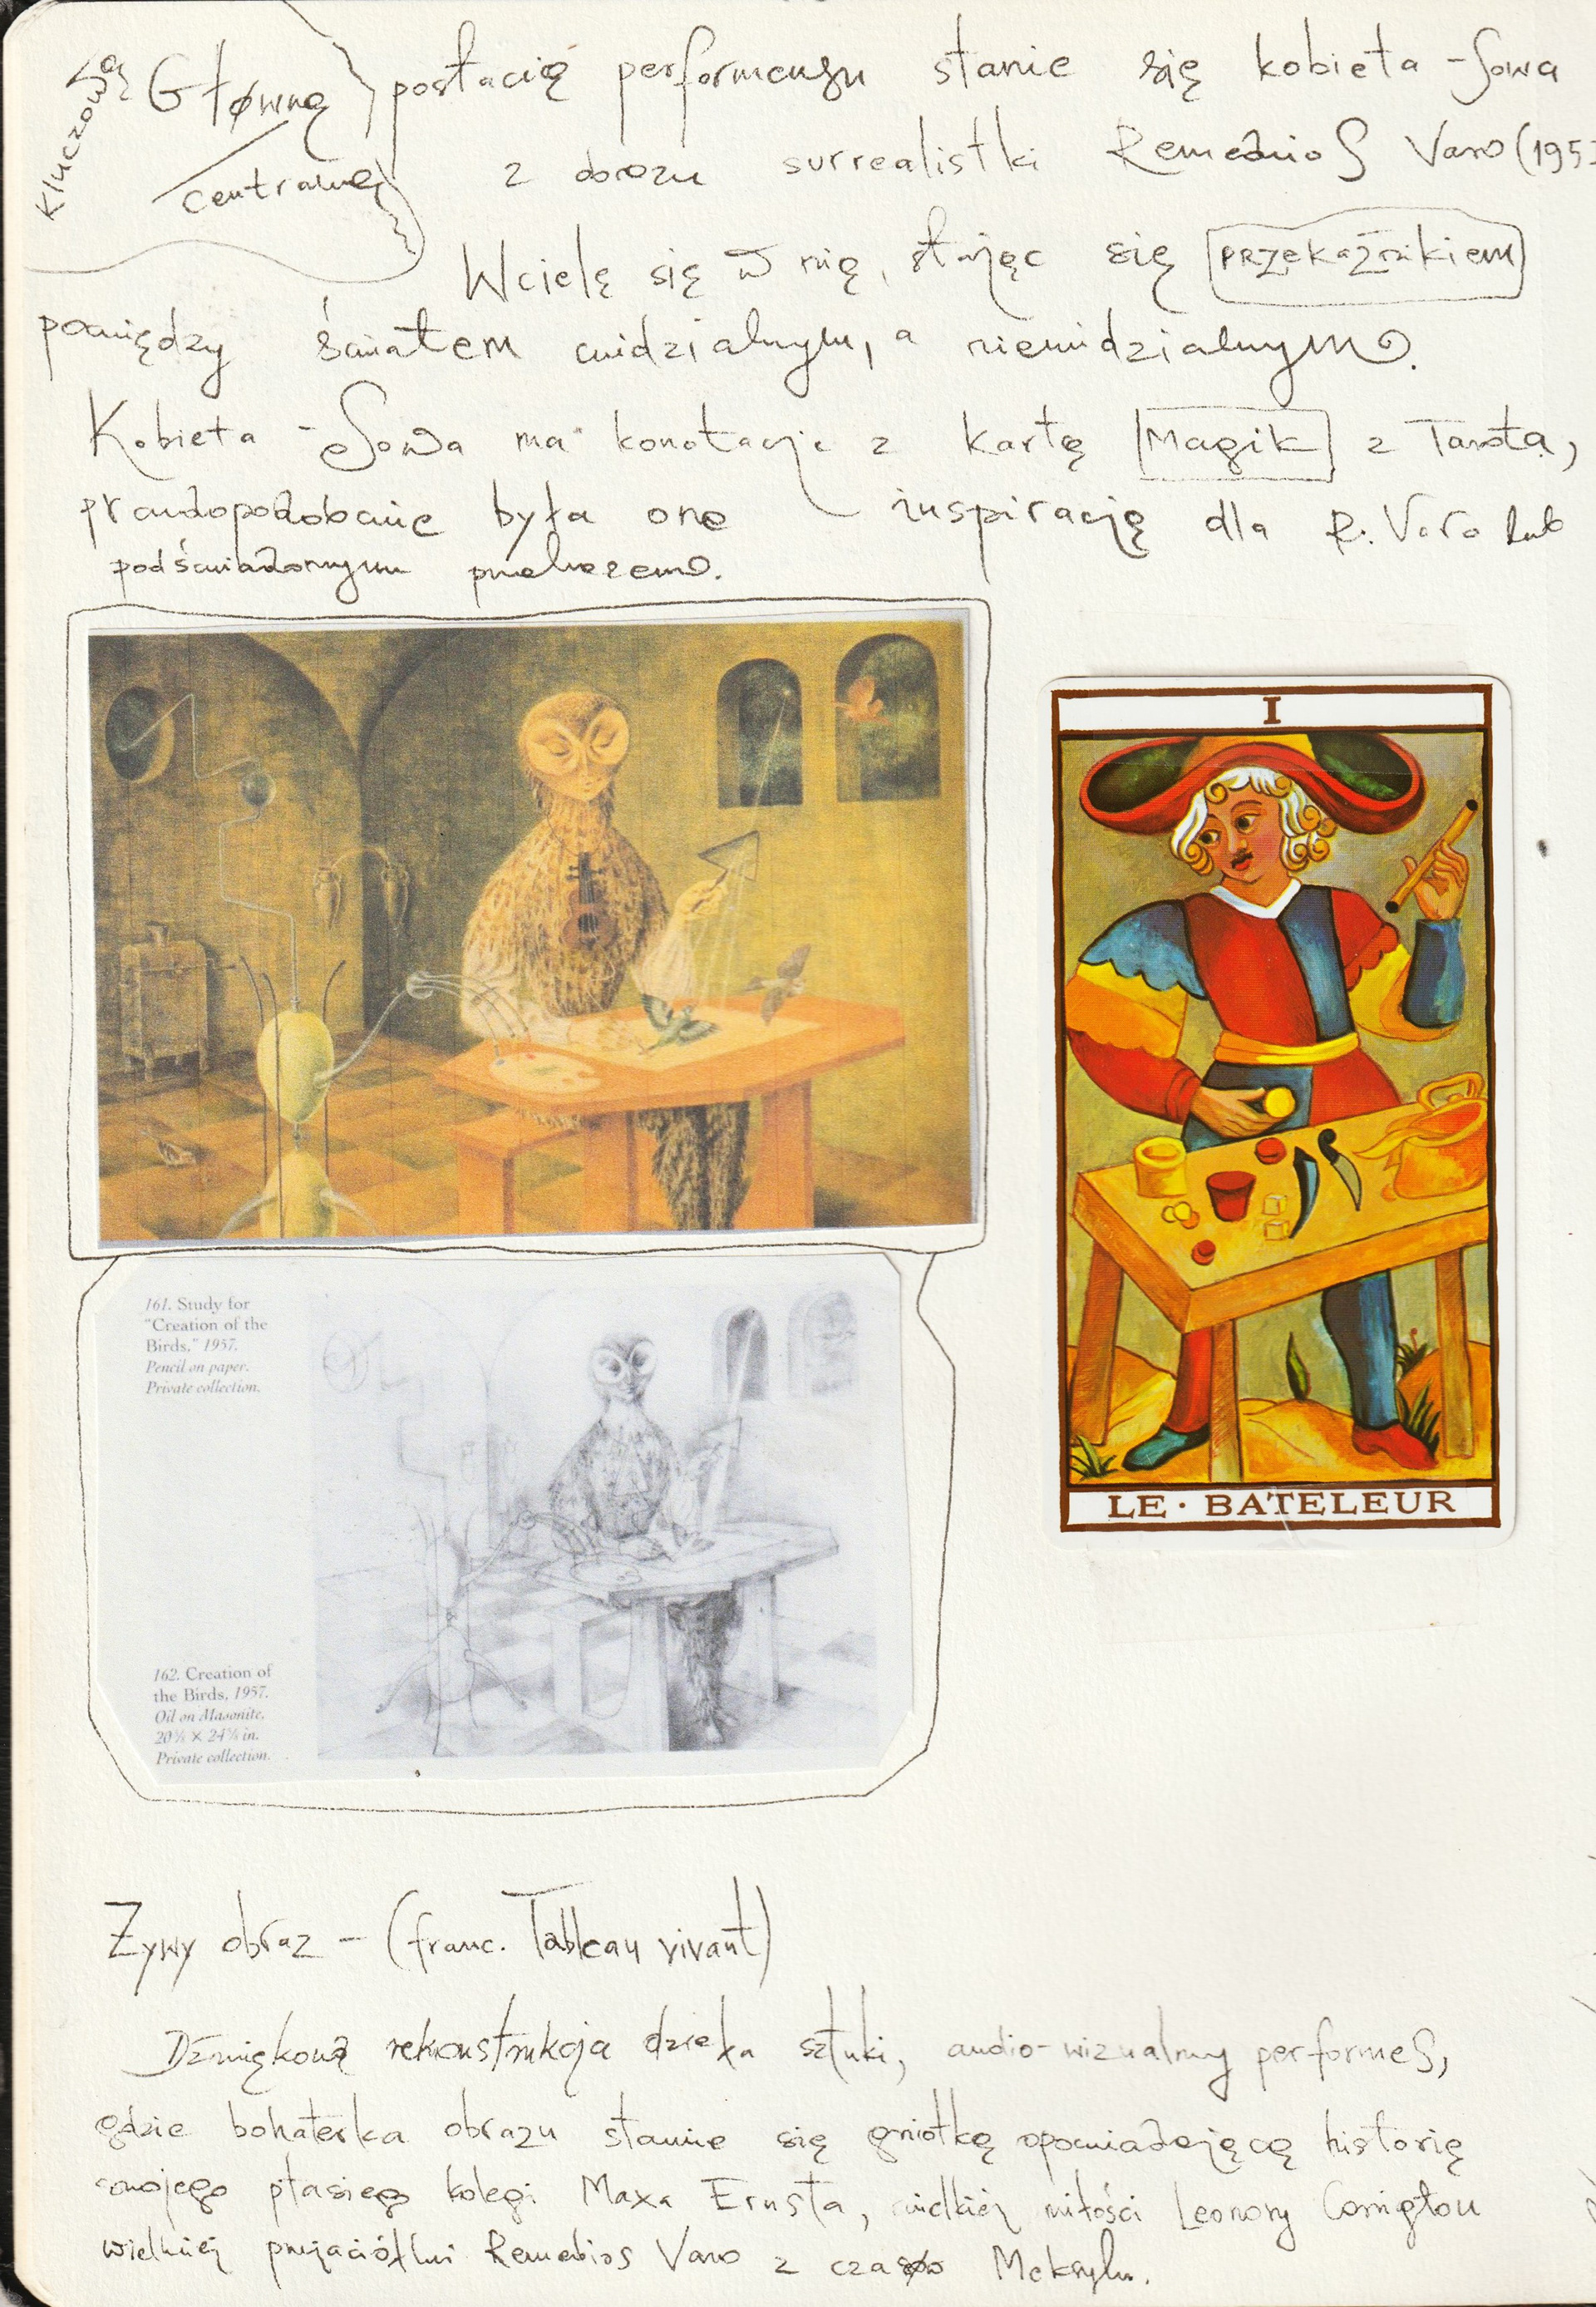 Kluczową
Główną postacią performensu stanie się kobieta-Sowa
centralną
z obrazu surrealistki Remedios Varo (195
Wcielę się w nią, stając się PRZEKAŹnikiem
pomiędzy światem widzialnym, a niewidzialnym.
Kobieta-Sowa ma konotacje z kartą Magik z Tarota,
prawdopodobnie była ona inspiracją dla R. Varo lub
podświadomym przekazem.
I
LE·BATELEUR
161. Study for
"Creation of the
Birds," 1957.
Pencil on paper.
Private collection.
162. Creation of
the Birds, 1957.
Oil on Masonite,
in.
Private collection.
Żywy obraz – (franc. Tableau vivant)
Dźwiękowa rekonstrukcja dzieła sztuki, audio-wizualny performes,
gdzie bohaterka obrazu stanie się opowiadającą historię
swojego ptasiego kolegi Maxa Ernsta, wielkiej miłości Leonory Carrington
wielkiej przyjaciółki Remedios Varo z czasów Meksyku.